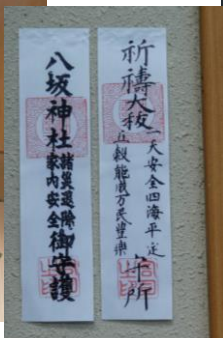 祈禱大祓
一天安全四海平定
五穀能成万民豊樂
所
八坂神社
諸災退除
家内安全
御守護